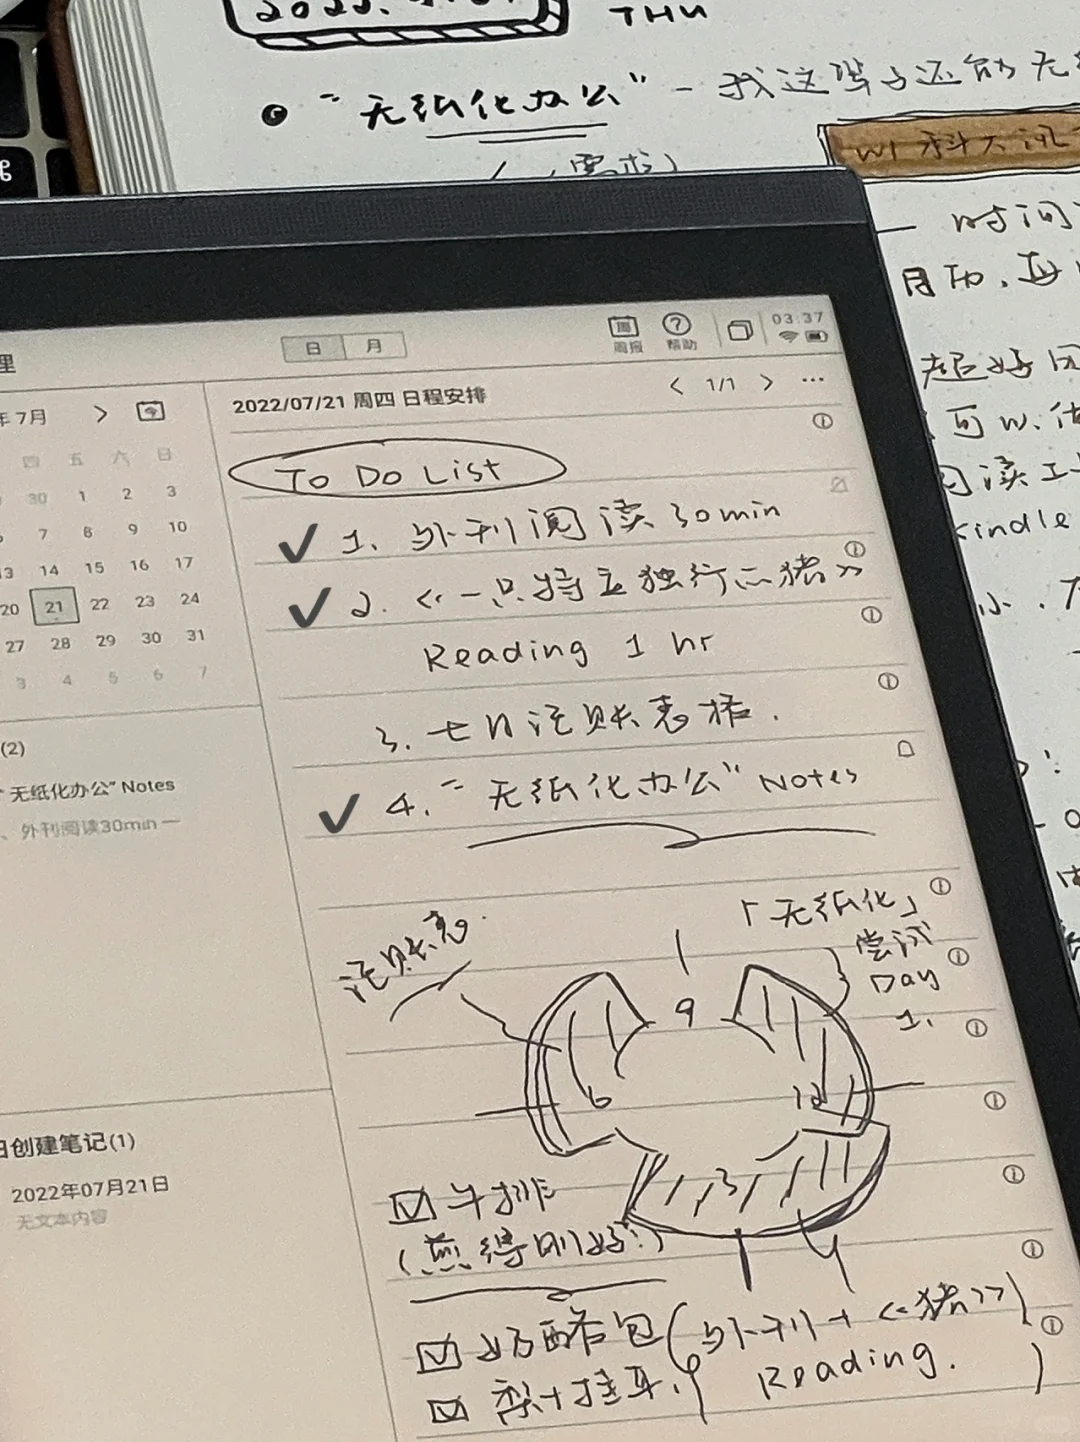 THU
"无纸化办公" - 我这辈子还能无
(需求)
科大讯
时间
超好用
可以
阅读工
kindle
小
理
日 月
周报
帮助
03.37
年7月 >
2022/07/21 周四 日程安排
< 1/1 > ...
四 五 六 日
30 1 2 3
7 8 9 10
13 14 15 16 17
20 21 22 23 24
27 28 29 30 31
3 4 5 6 7
To Do List
✓ 1. 外刊阅读30min
✓ 2. 《一只特立独行的猪》
Reading 1 hr
3. 七月记账表格.
✓ 4. "无纸化办公" Notes
(2)
"无纸化办公" Notes
、外刊阅读30min 一
记账表.
「无纸化」
尝试
Day
1.
9
6
12
3
日创建笔记(1)
2022年07月21日
无文本内容
☑ 牛排
(煎得刚好!)
☑ 奶酪包
☑ 梨+挂耳.
(外刊+《猪》
Reading. )